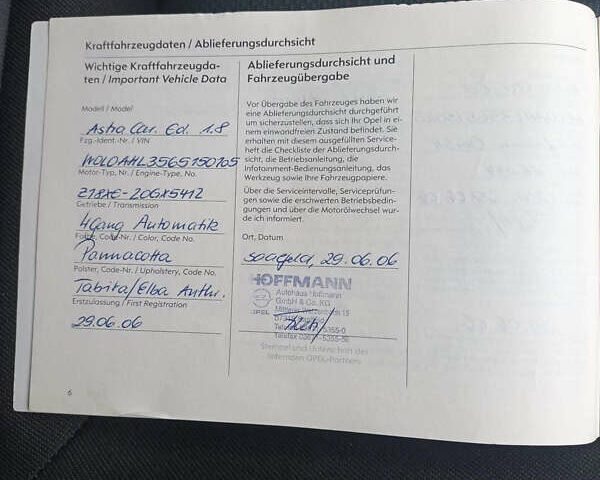 Kraftfahrzeugdaten / Ablieferungsdurchsicht
Wichtige Kraftfahrzeugda-
ten / Important Vehicle Data
Modell / Model
Astra Car. Ed. 1.8
Fzg.-Ident.-Nr. / VIN
W0L0AHL3565150705
Motor-Typ, Nr. / Engine-Type, No.
Z18XE-20GX5412
Getriebe / Transmission
4Gang Automatik
Farbe, Code-Nr. / Color, Code No.
Pannacotta
Polster, Code-Nr. / Upholstery, Code No.
Tabita/Elba Anthr.
Erstzulassung / First Registration
29.06.06
6
Ablieferungsdurchsicht und
Fahrzeugübergabe
Vor Übergabe des Fahrzeuges haben wir
eine Ablieferungsdurchsicht durchgeführt
um sicherzustellen, dass sich Ihr Opel in ei-
nem einwandfreien Zustand befindet. Sie
erhalten mit diesem ausgefüllten Service-
heft die Checkliste der Ablieferungsdurch-
sicht, die Betriebsanleitung, die
Infotainment-Bedienungsanleitung, das
Werkzeug sowie Ihre Fahrzeugpapiere.
Über die Serviceintervalle, Serviceprüfun-
gen sowie die erschwerten Betriebsbedin-
gungen und über die Motorölwechsel wur-
de ich informiert.
Ort, Datum
Saalfeld, 29.06.06
HOFFMANN
Autohaus Hoffmann
GmbH & Co. KG
OPEL
5355-0
Stempel und Unterschrift des
liefernden OPEL-Partners